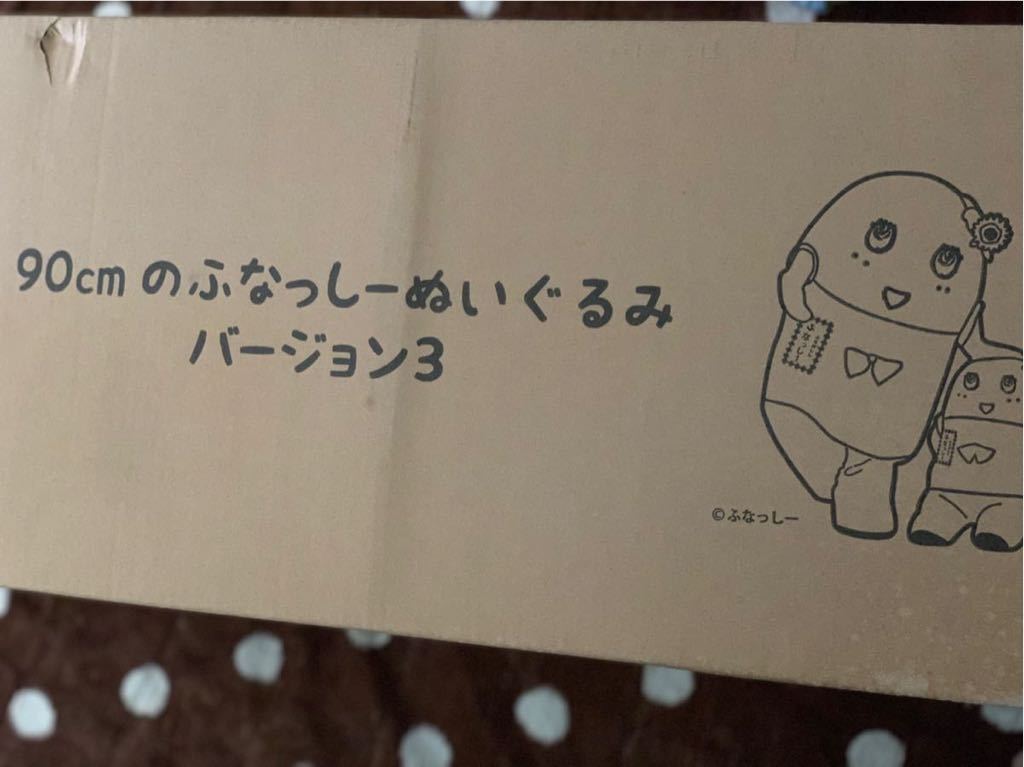 90cmのふなっしーぬいぐるみ
バージョン3
ふなっしー
©ふなっしー